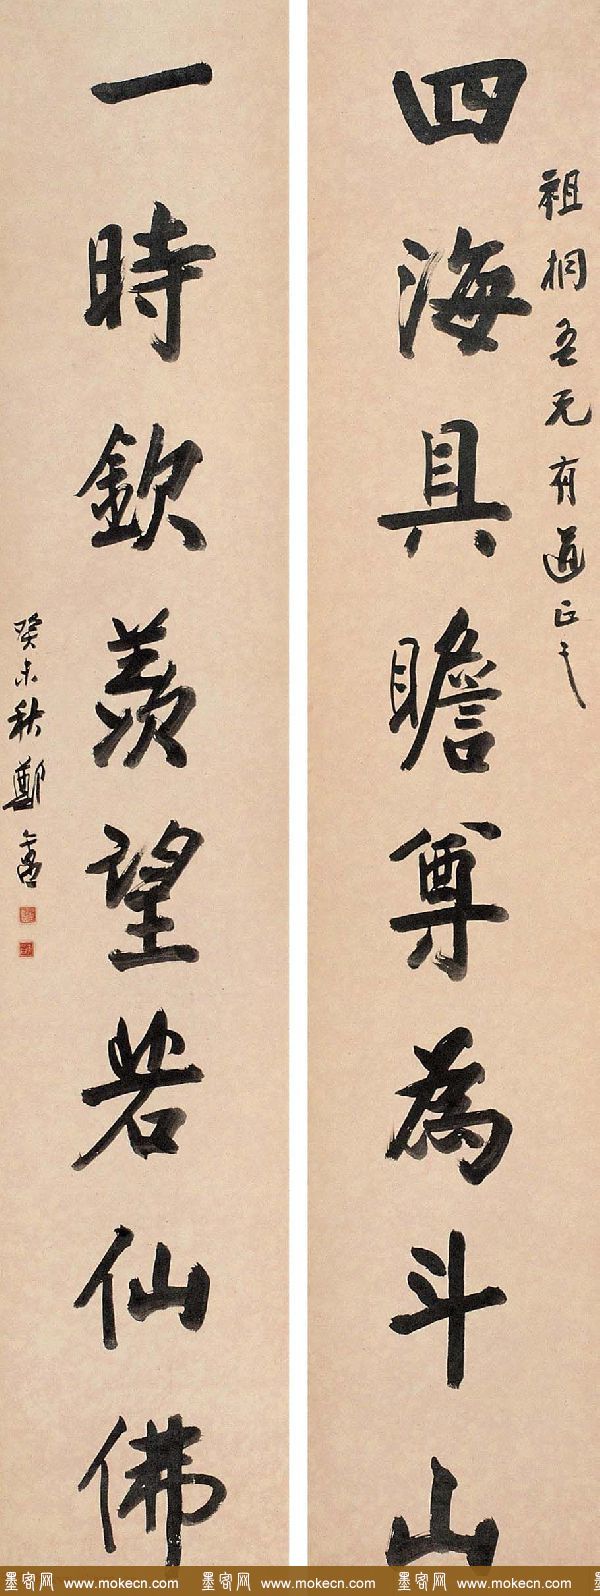 祖桐吾兄有道正之
四海具瞻尊為斗山
一時欽羨望若仙佛
癸未秋鄭
墨客网 www.mokecn.com 墨客网 www.mokecn.com 墨客网 www.mokecn.com